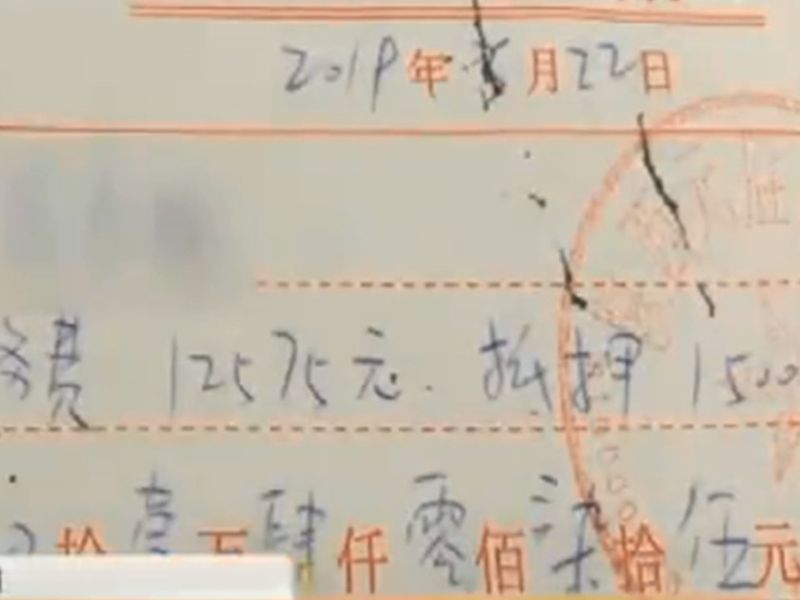 2019年5月22日
务费 12575元. 抵押 1500
拾壹万肆仟零佰柒拾伍元